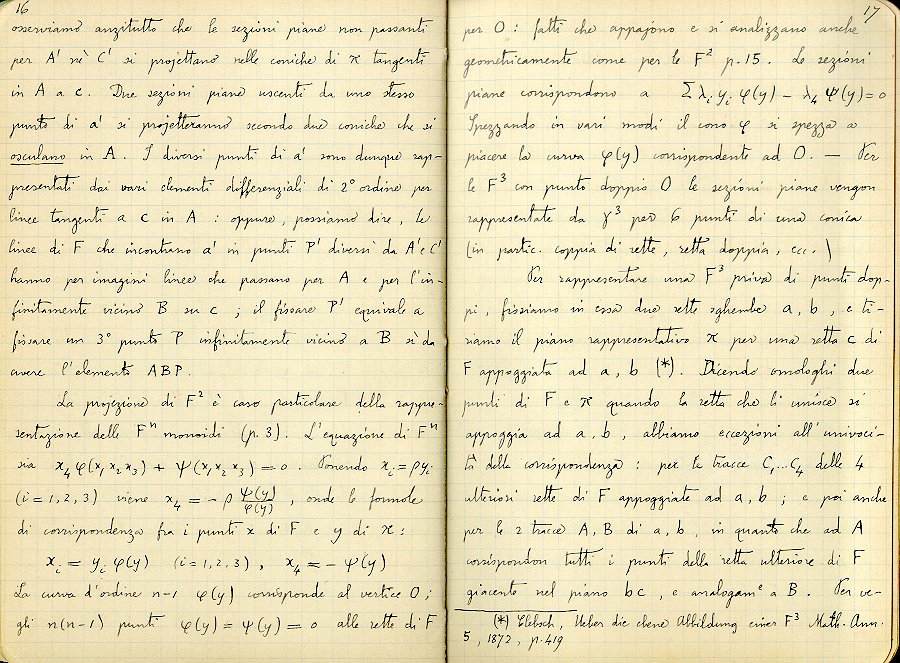 16
osserviamo anzitutto che le sezioni piane non passanti
per A' nè C' si projettano nelle coniche di π tangenti
in A a c. Due sezioni piane uscenti da uno stesso
punto di a' si projetteranno secondo due coniche che si
osculano in A. I diversi punti di a' sono dunque rap-
presentati dai vari elementi differenziali di 2° ordine per
linee tangenti a c in A : oppure, possiamo dire, le
linee di F che incontrano a' in punti P' diversi da A' e C'
hanno per imagini linee che passano per A e per l'in-
finitamente vicino B su c ; il fissare P' equivale a
fissare un 3° punto P infinitamente vicino a B sì da
avere l'elemento ABP.
La projezione di F² è caso particolare della rappre-
sentazione delle Fⁿ monoidi (p. 3). L'equazione di Fⁿ
sia x₄φ(x₁x₂x₃) + ψ(x₁x₂x₃) = 0. Ponendo xᵢ = ρyᵢ
(i = 1, 2, 3) viene x₄ = – ρ ψ(y)/φ(y) , onde le formole
di corrispondenza fra i punti x di F e y di π :
xᵢ = yᵢ φ(y) (i = 1, 2, 3) , x₄ = – ψ(y)
La curva d'ordine n-1 φ(y) corrisponde al vertice O ;
gli n(n-1) punti φ(y) = ψ(y) = 0 alle rette di F
17
per O : fatti che appajono e si analizzano anche
geometricamente come per le F² p. 15. Le sezioni
piane corrispondono a Σ λᵢ yᵢ φ(y) – λ₄ ψ(y) = 0
Spezzando in vari modi il cono φ si spezza a
piacere la curva φ(y) corrispondente ad O. — Per
le F³ con punto doppio O le sezioni piane vengon
rappresentate da γ³ per 6 punti di una conica
(in partic. coppia di rette, retta doppia, ecc.)
Per rappresentare una F³ priva di punti dop-
pi, fissiamo in essa due rette sghembe a, b , e ti-
riamo il piano rappresentativo π per una retta c di
F appoggiata ad a, b (*). Dicendo omologhi due
punti di F e π quando la retta che li unisce si
appoggia ad a, b , abbiamo eccezioni all'univoci-
tà della corrispondenza : per le tracce C₁...C₄ delle 4
ulteriori rette di F appoggiate ad a, b ; e poi anche
per le 2 tracce A, B di a, b , in quanto che ad A
corrispondon tutti i punti della retta ulteriore di F
giacente nel piano bc , e analogamᵉ a B. Per ve-
(*) Clebsch, Ueber die ebene Abbildung einer F³ Math. Ann.
5 , 1872, p. 419